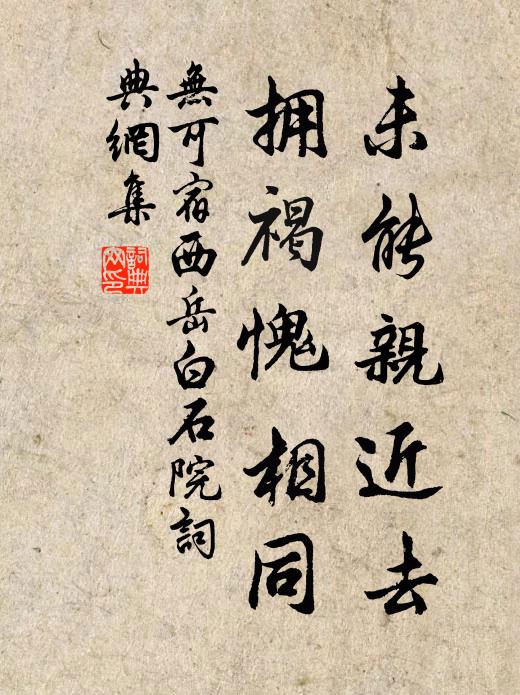 未能親近去
拥褐愧相同
無可宿西岳白石院詞
典網集
詞典
网印